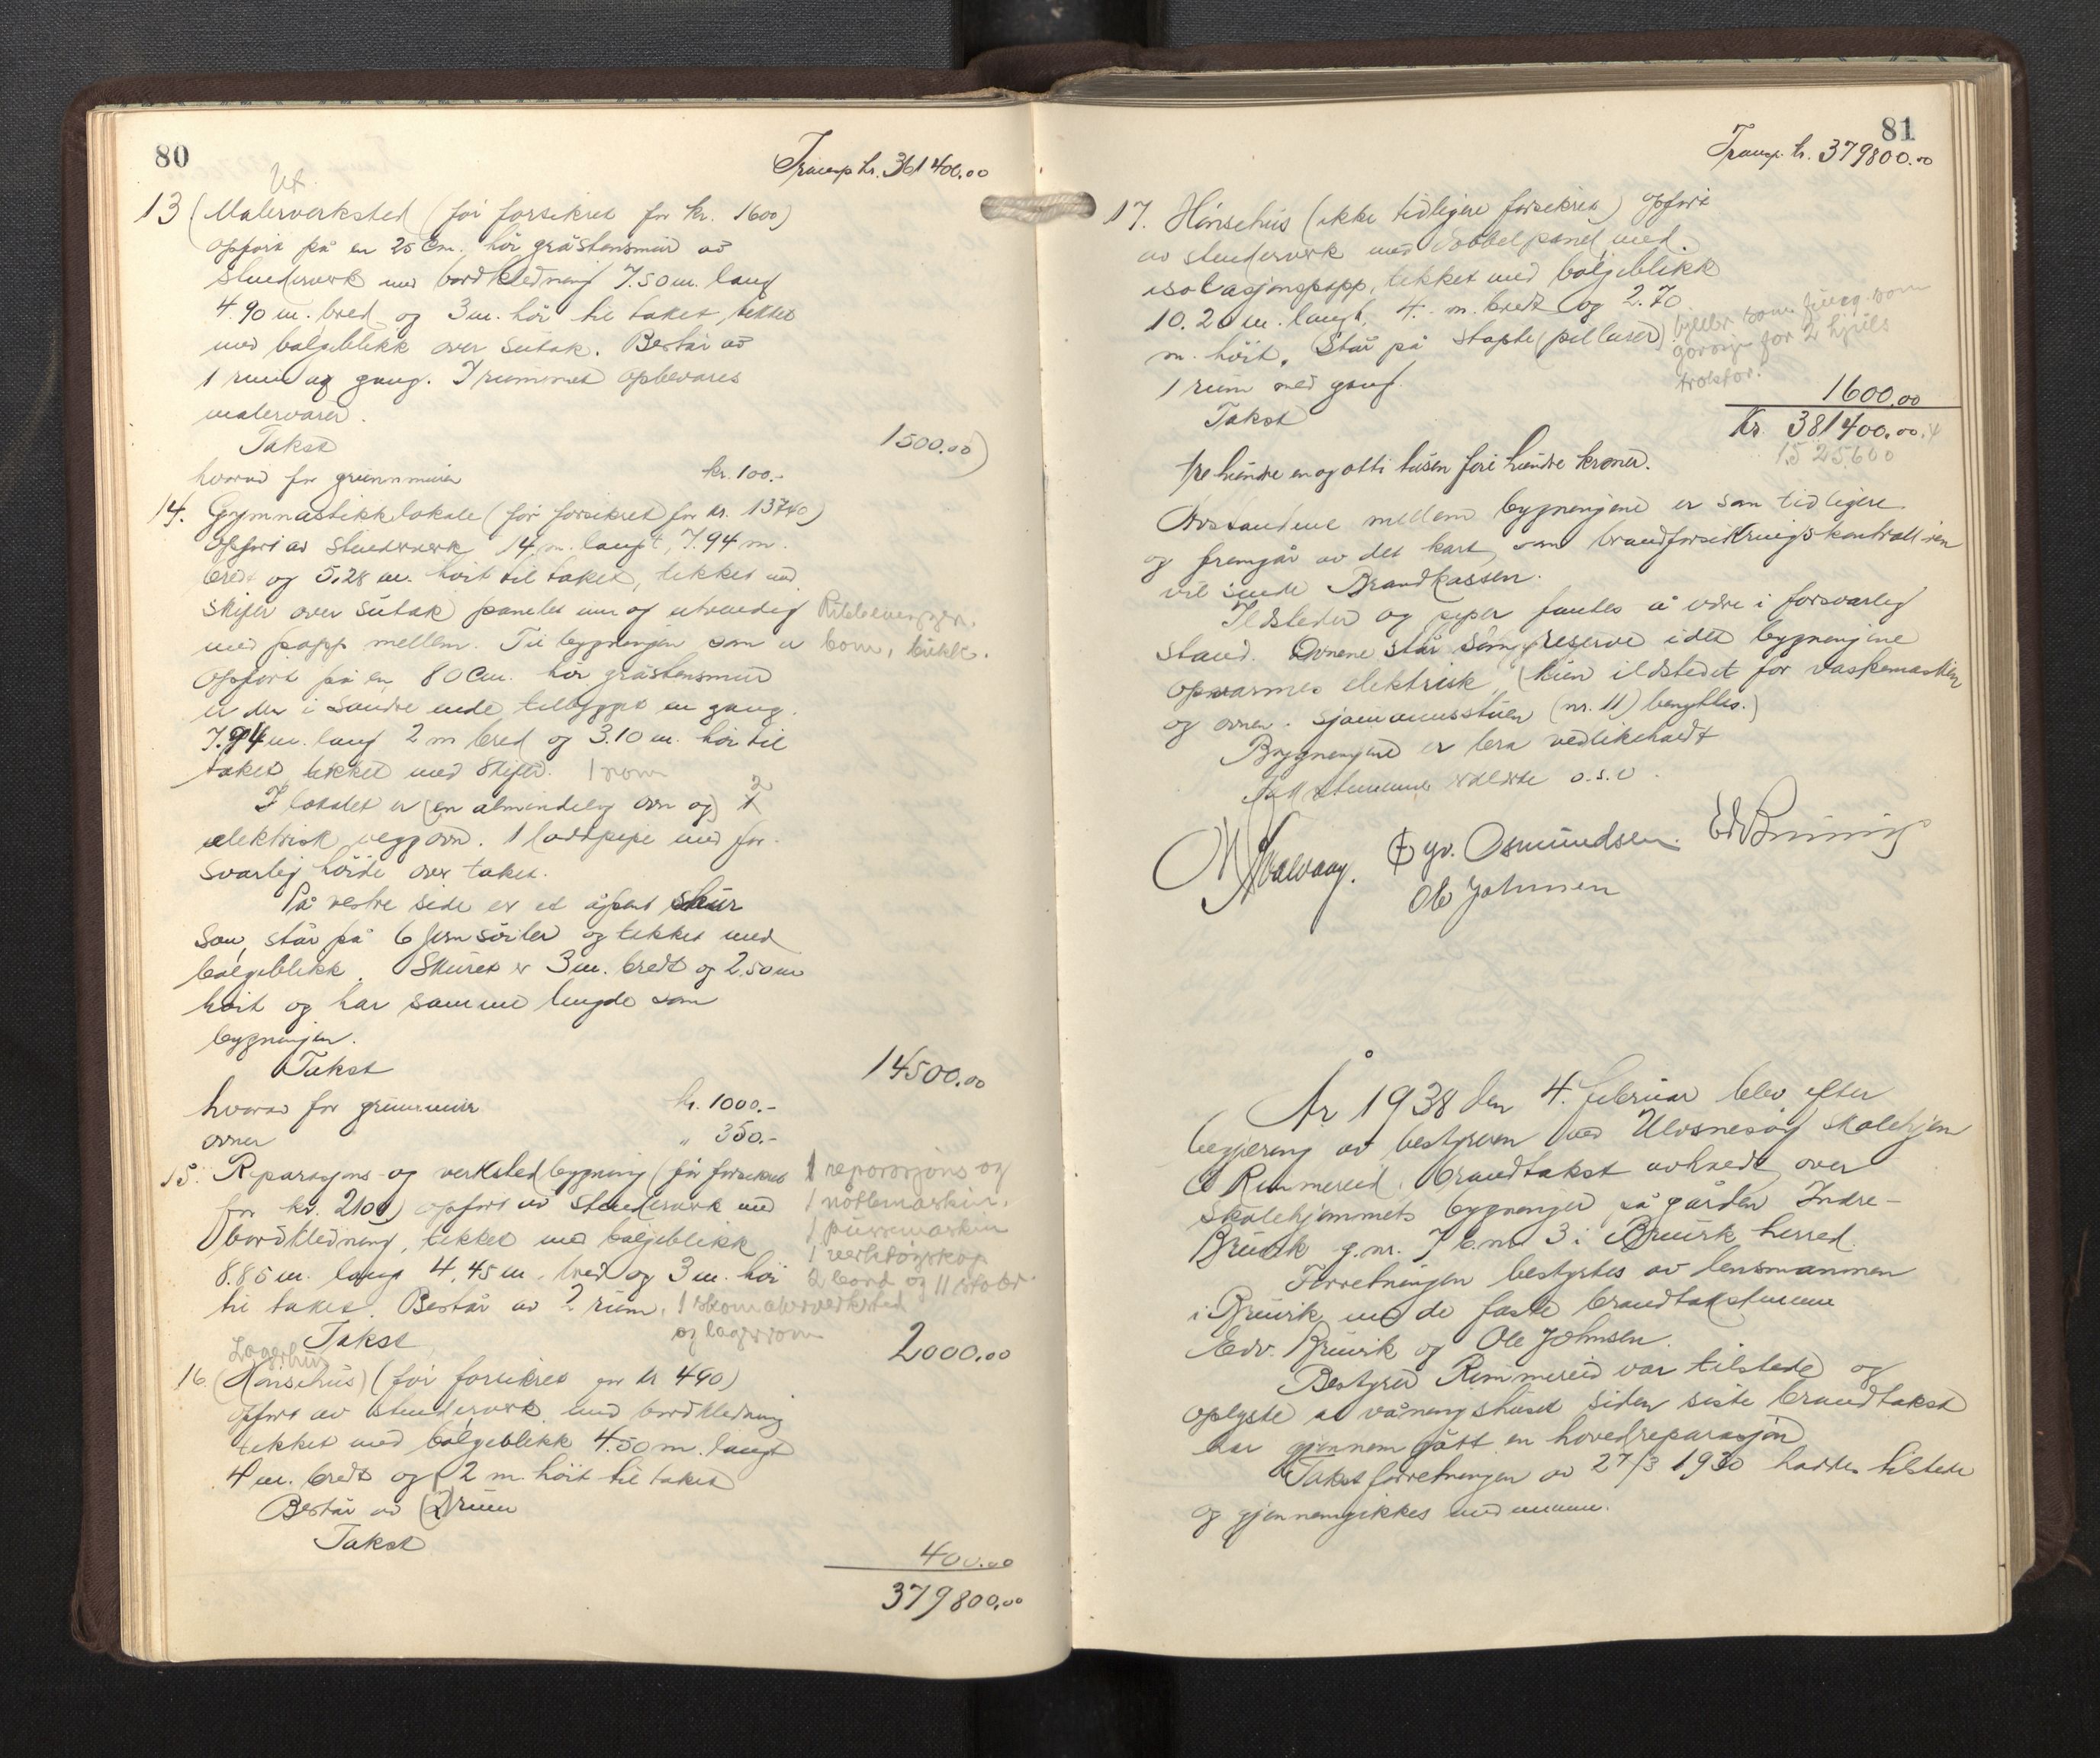 80
Transp kr. 361400.00
Ut.
13 (Malerverksted (før forsikret for kr. 1600)
opført på en 25 Cm. høi gråstensmur av
stenderverk med bordkledning 7.50 m. lang
4.90 m. bred og 3 m. høi til taket, tekket
med bølgeblikk over sutak. Består av
1 rum og gang. I rummet opbevares
malervarer.
Takst 1500.00)
hvorav for grunnmuren kr. 100.-
14. Gymnastikklokale (før forsikret for kr. 13740)
opført av stenderverk 14 m. langt, 7.94 m.
bredt og 5.28 m. høit til taket, tekket med
skifer over sutak panelet inn og utvendig Ribbevegger,
med papp mellem. Til bygningen som er bom, bukk.
opført på en 80 Cm. høi gråstensmur
er der i søndre ende tilbygget en gang
7.94 m. lang 2 m bred og 3.10 m. høi til
taket, tekket med skifer. 1 rom
I lokalet er (en almindelig ovn og) 1 2
elektrisk veggovn. 1 luftpipe med for-
svarlig høide over taket.
På vestre side er et åpent skur
som står på 6 jernsöiler og tekket med
bølgeblikk. Skuret er 3 m. bredt og 2.50 m
høit og har samme lengde som
bygningen.
Takst 14500.00
hvorav for grunnmur kr. 1000.-
ovner " 350.-
15. Reparasjons- og verkstedbygning (før forsikret 1 reparasjons og
for kr. 2100) opført av stenderverk med 1 nåtlemaskin,
bordkledning, tekket med bølgeblikk 1 pussemaskin
8.85 m. lang 4.45 m. bred og 3 m. høi 1 verktøyskap
til taket. Består av 2 rum, 1 skomakerverksted 2 bord og 11 stoler.
og lagerrom
Takst 2000.00
Lagerhus
16. (Hønsehus) (før forsikret for kr 490)
opført av stenderverk med bordkledning
tekket med bølgeblikk 4.50 m. langt
4 m. bredt og 2 m høit til taket
Består av (2) rum
Takst
400.00
379800.00
81
Transp. kr. 379800.00
17. Hönsehus (ikke tidligere forsikret) opført
av stenderverk med dobbel panel med.
isolasjonspapp, tekket med bølgeblikk
10.20 m. langt, 4.- m. bredt og 2.70
m. höit. Står på støpte (pillarer) som
garasje for 2 hjuls
traktor.
1 rum med gang.
Takst 1600.00
Kr. 381400.00
1525600
tre hundre en og otti tusen fire hundre kroner.
Avstandene mellem bygningene er som tidligere
og fremgår av det kart, som brandforsikringskontrollören
vil sende Brandkassen.
Ildsteder og piper fantes å være i forsvarlig
stand. Ovnene står som reserve idet bygningene
opvarmes elektrisk (kun ildstedet for vaskemaskin
og ovnen i sjømannsstuen (nr. 11) benyttes.)
Bygningene er bra vedlikeholdt
Takstmennene erklærte o.s.v.
Ole Johnsen Gyv. Osmundsen. Edv Bruvik
År 1938 den 4. februar blev efter
begjæring av bestyreren ved Ulvsnesøy skolehjem
O Rimmereid, brandtakst avholdt over
skolehjemmets bygninger på gården Indre-
Bruvik g.nr. 7 b.nr 3 i Bruvik herred.
Forretningen bestyrtes av lensmannen
i Bruvik med de faste brandtakstmenn
Edv. Bruvik og Ole Johnsen.
Bestyrer Rimmereid var tilstede og
oplyste at våningshuset siden siste brandtakst
har gjennemgått en hovedreparasjon
Takstforretningen av 27/3 1930 haddes tilstede
og gjennemgikkes med mennene.